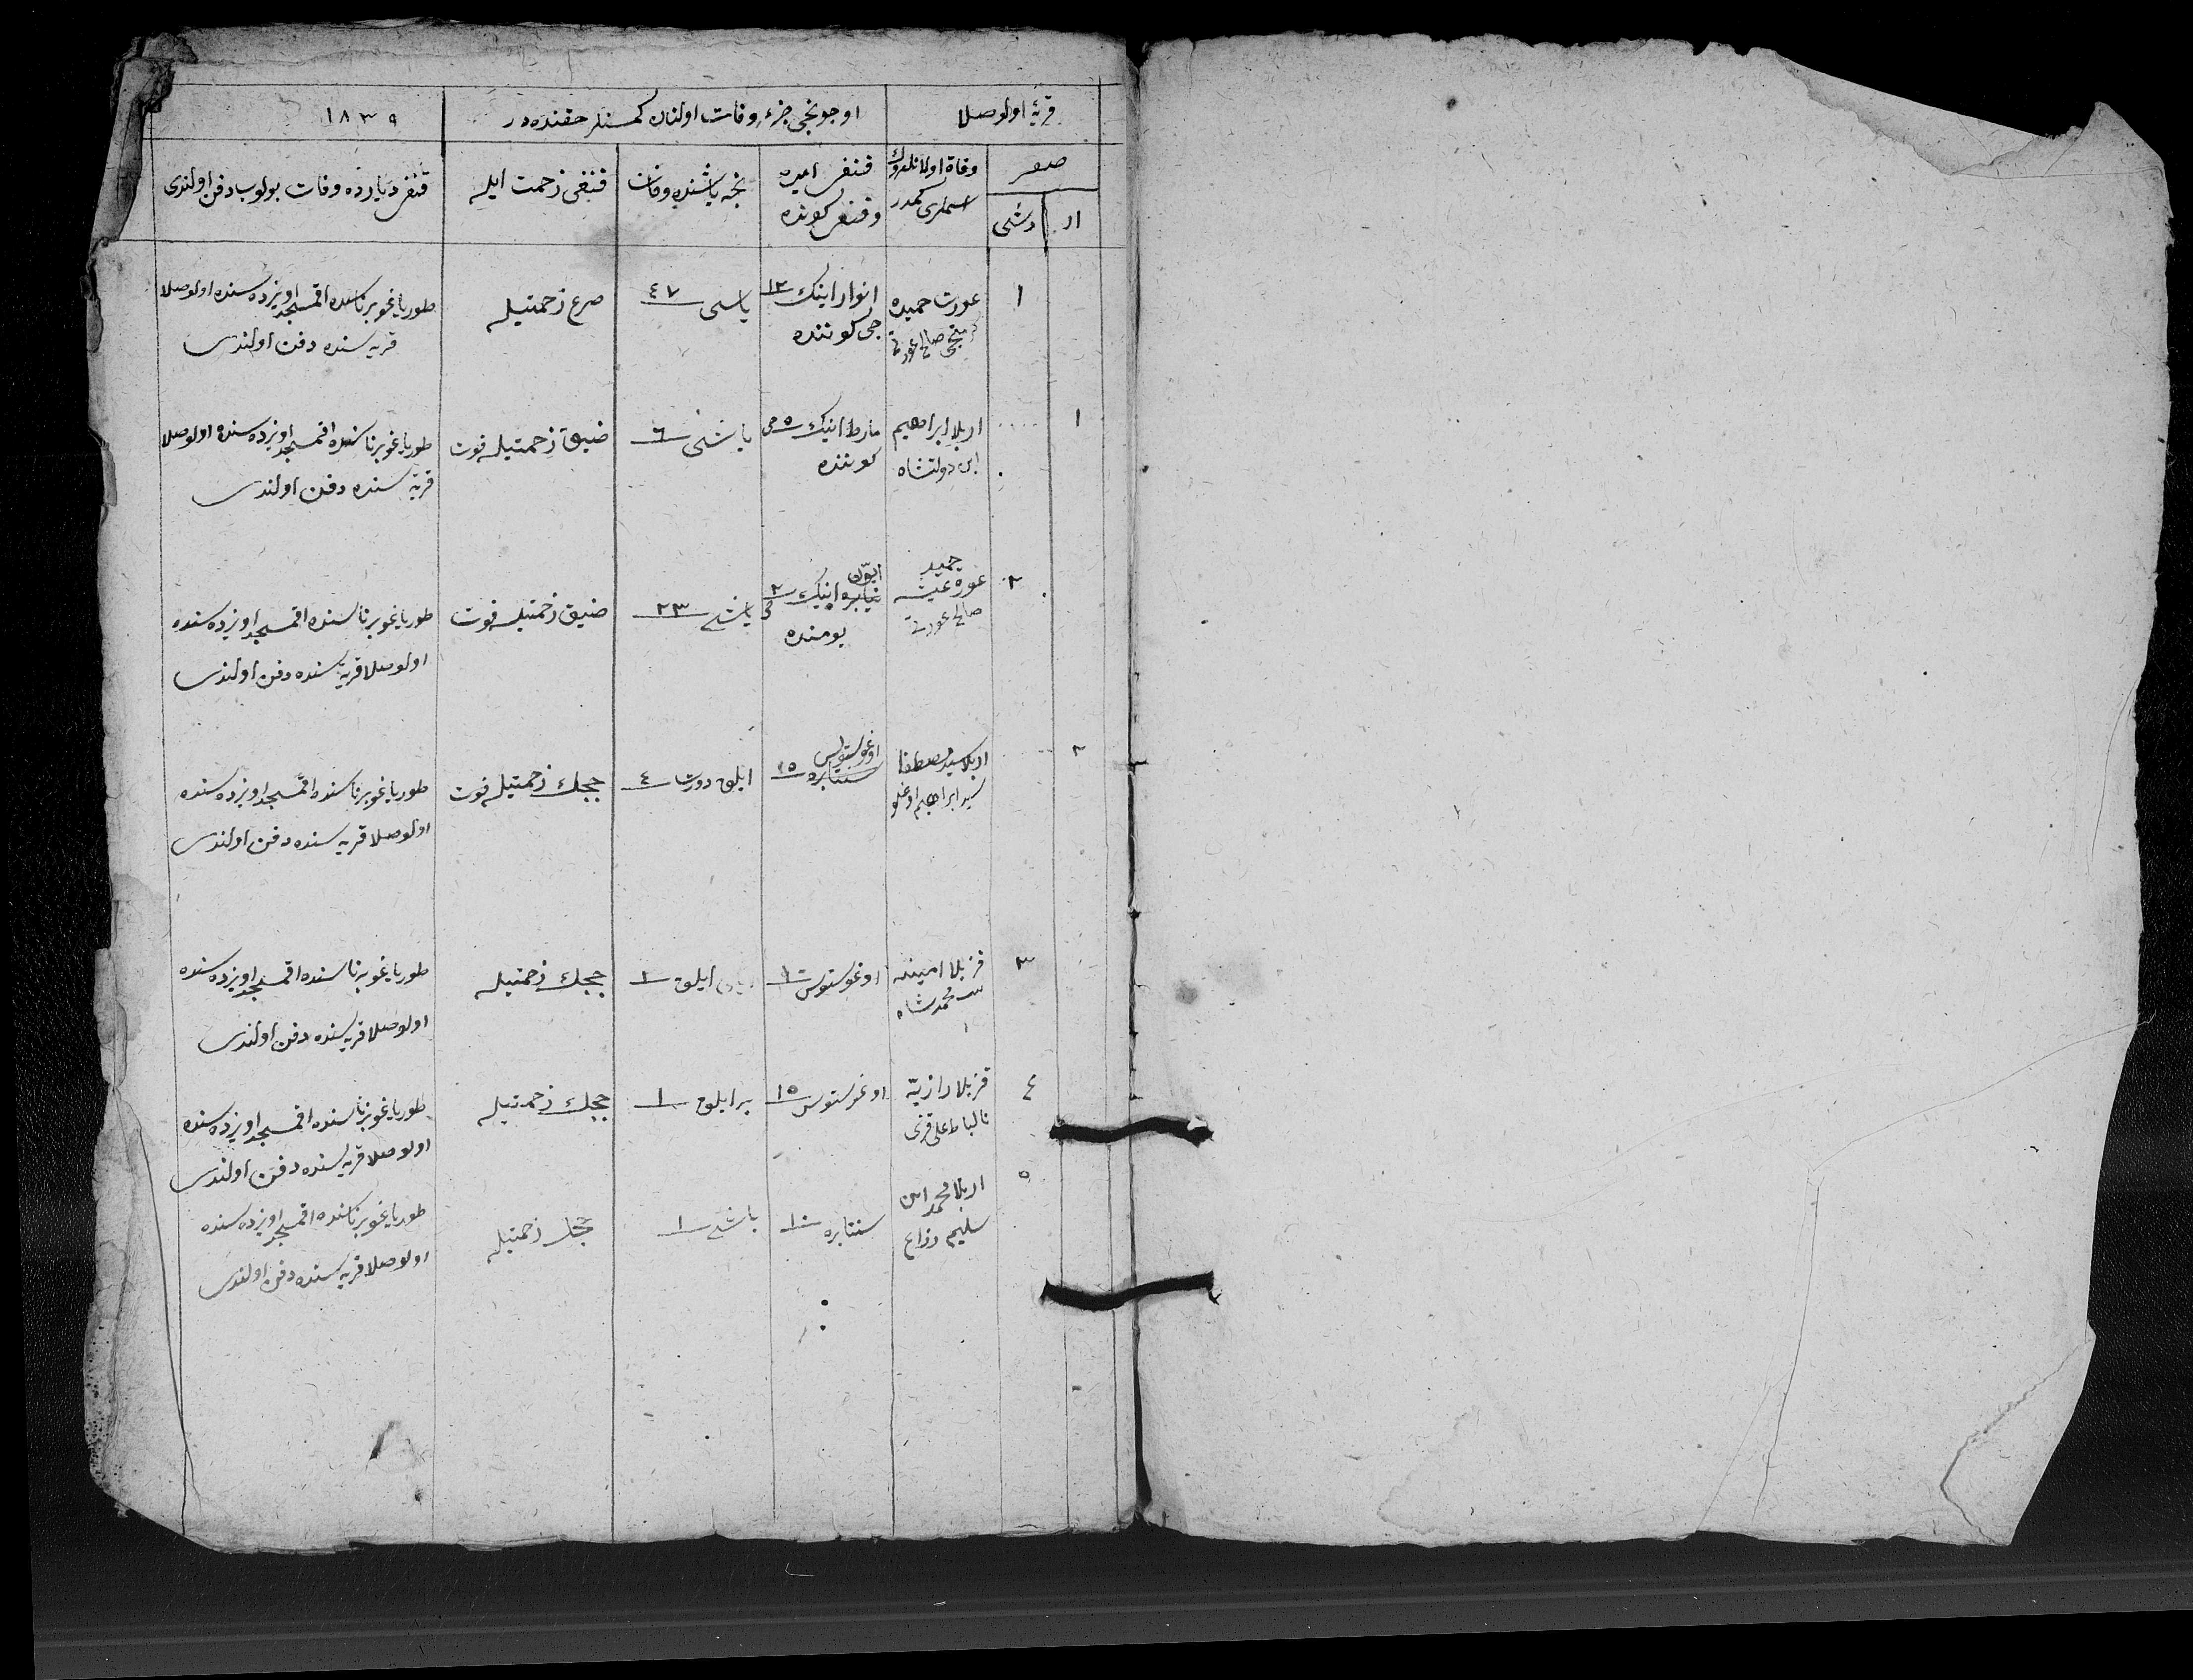 قریهٔ اولوصلا
اوچونجی جزء وفات اولنان کمسنلر حقنده در
١٨٣٩
صفر
ار
دشی
وفاة اولانلروك
اسملری کمدر
قنغی ایده
و قنغی کونده
نجه یاشنده وفات
قنغی زحمت ایله
قنغی دیارده وفات بولوب دفن اولندی
١
عورت حمیده
صالح عورتی
انوار اینك ١٢
جی کوننده
یاشی ٤٧
صرع زحمتیله
طوریا غوبرناسنده اقمسجد اویزده سنده اولوصلا
قریه سنده دفن اولندی
١
اربلا ابراهیم
ابن دولتشاه
مارط اینك ٥ جی
کوننده
یاشی ٦
ضیق زحمتیله فوت
طوریا غوبرناسنده اقمسجد اویزده سنده اولوصلا
قریه سنده دفن اولندی
٢
حمید
عورة عیشه
صالح عورتی
ایون
اینك ٢
یومنده
یاشی ٢٣
ضیق زحمتیله فوت
طوریا غوبرناسنده اقمسجد اویزده سنده
اولوصلا قریه سنده دفن اولندی
٢
اربلا سید مصطفا
سید ابراهیم اوغلو
اوغوستوس
سنتابره ١٥
ایلق دورت ٤
چچك زحمتیله فوت
طوریا غوبرناسنده اقمسجد اویزده سنده
اولوصلا قریه سنده دفن اولندی
٣
قزبلا امینه
محمدشاه
اوغوستوس ١
ایلق ١
چچك زحمتیله
طوریا غوبرناسنده اقمسجد اویزده سنده
اولوصلا قریه سنده دفن اولندی
٤
قزبلا رازیه
علی قزی
اوغوستوس ١٥
بر ایلق ١
چچك زحمتیله
طوریا غوبرناسنده اقمسجد اویزده سنده
اولوصلا قریه سنده دفن اولندی
٥
اربلا محمد ابن
سلیم
سنتابره ١٠
یاشی ١
چچك زحمتیله
طوریا غوبرناسنده اقمسجد اویزده سنده
اولوصلا قریه سنده دفن اولندی